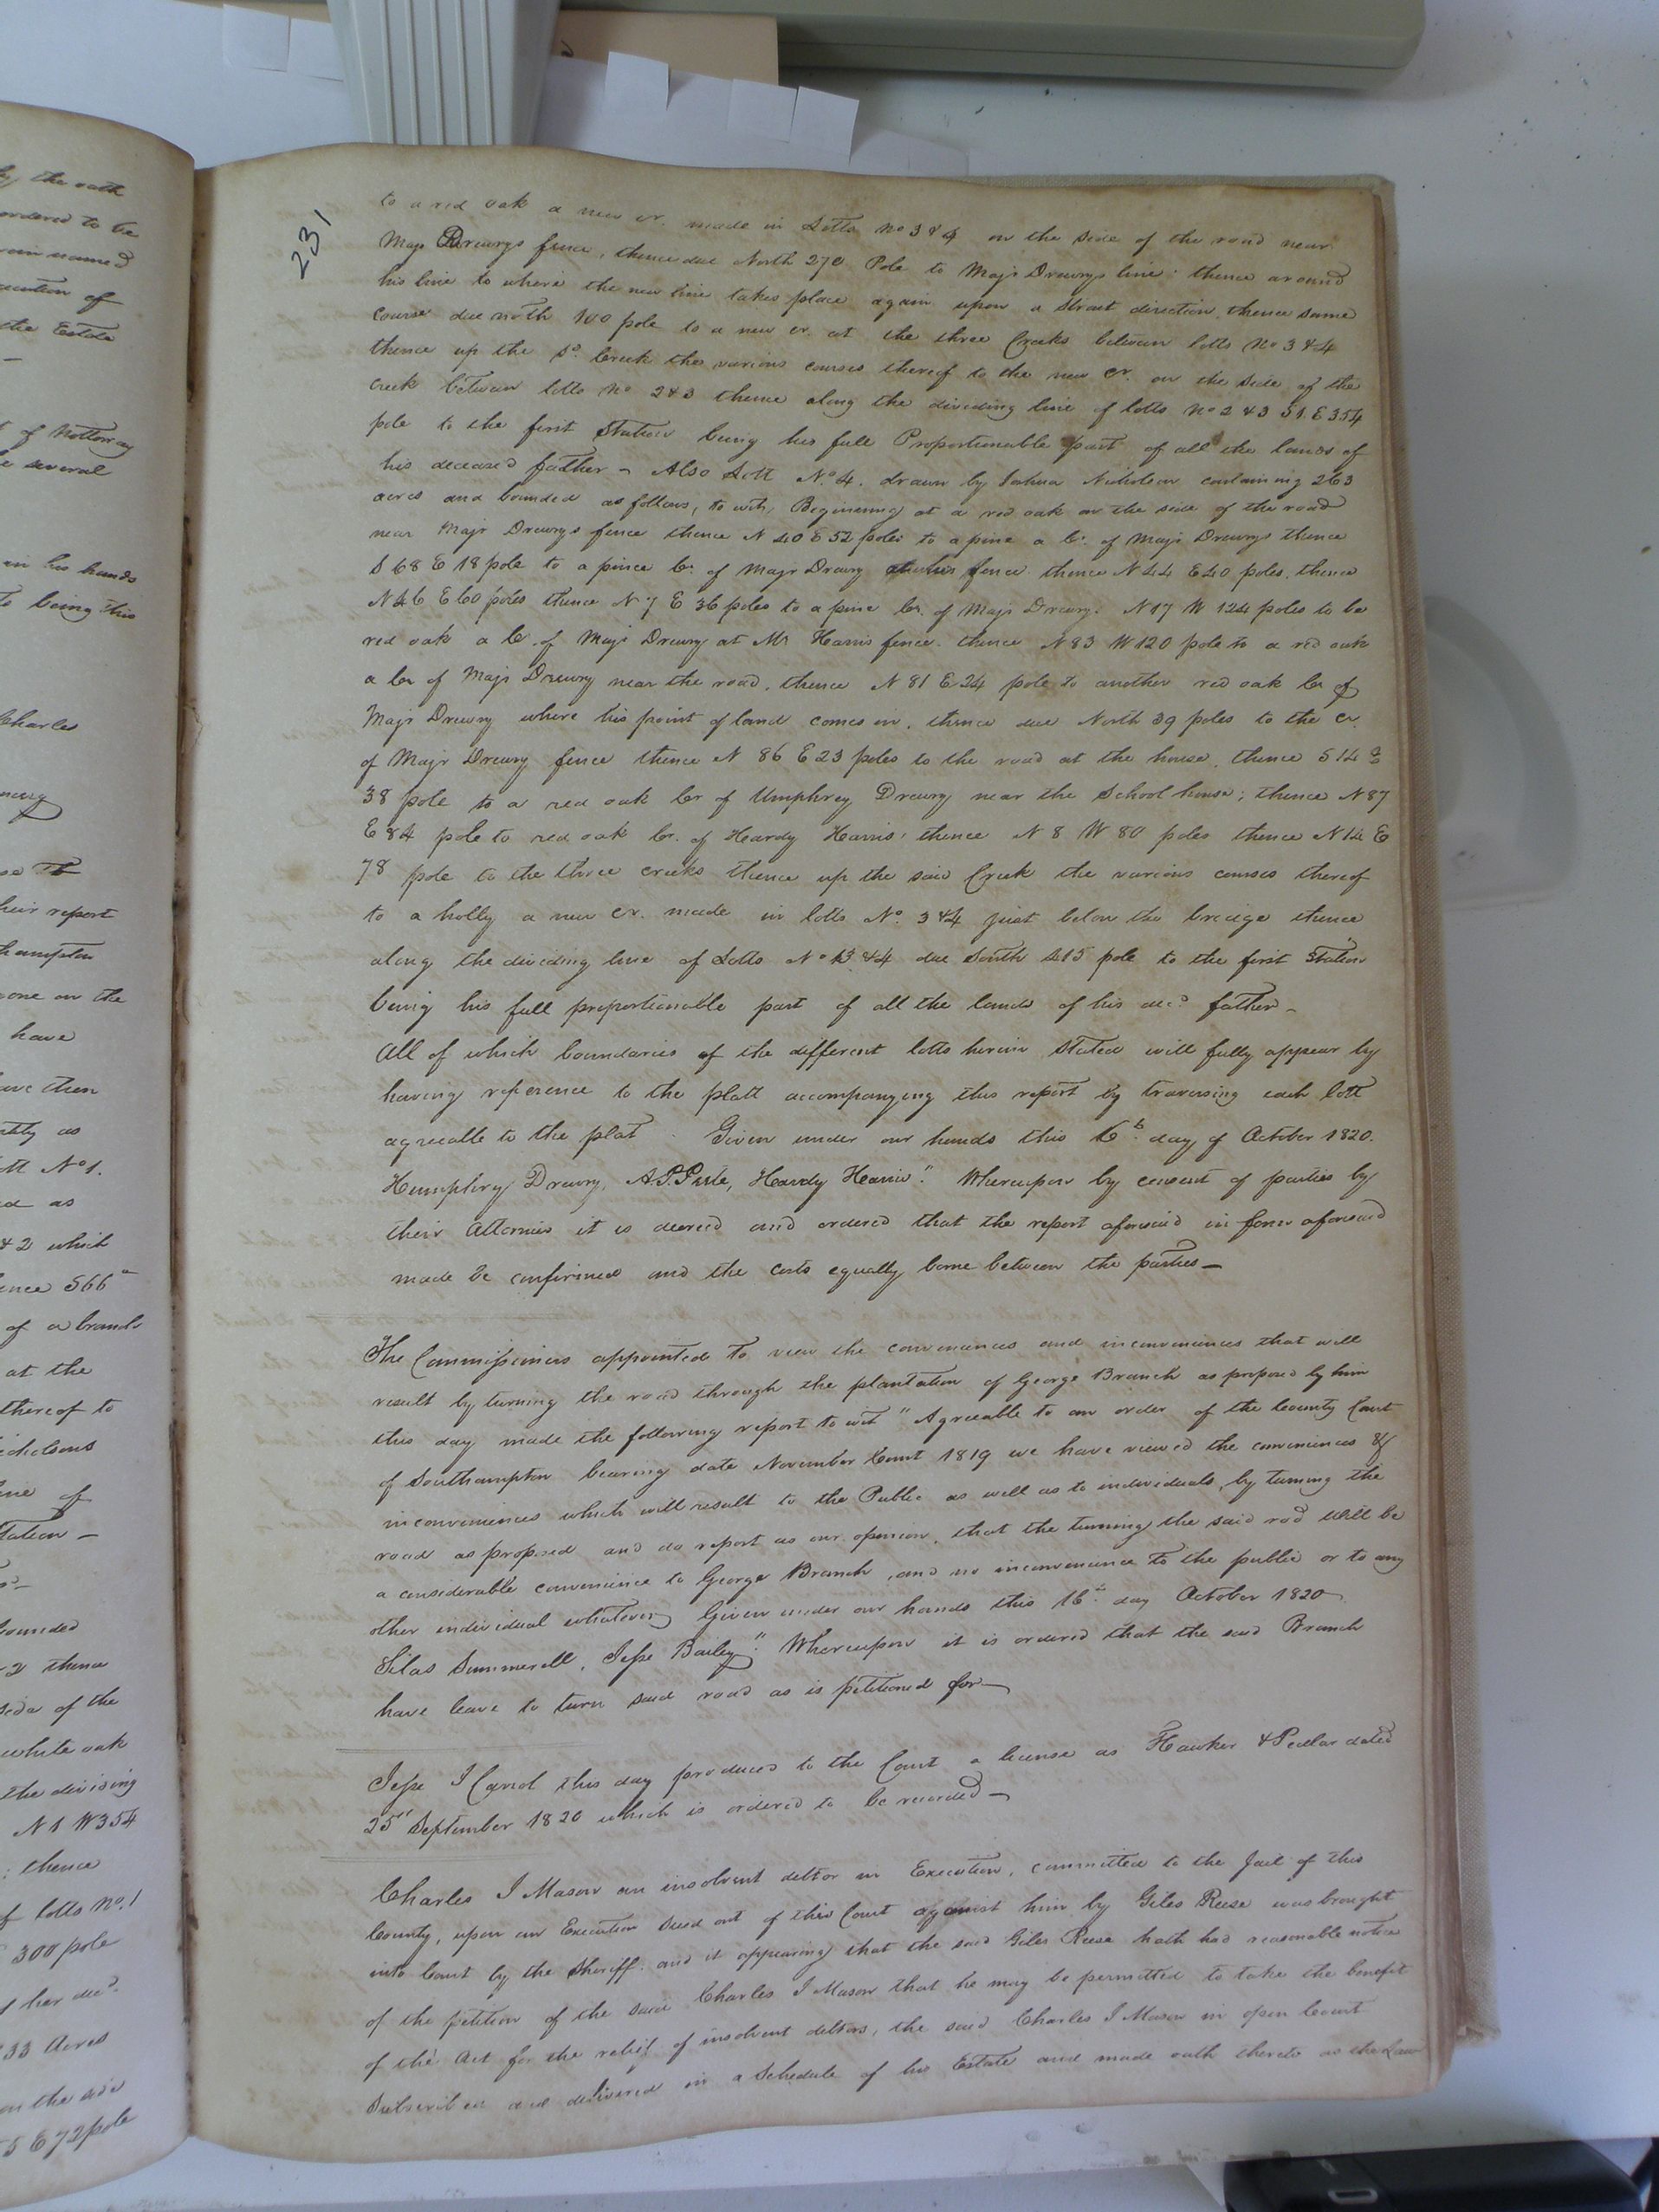 231
to a red oak a new cr. made in Lotts No 3 & 4 on the side of the road near
Majr Drewrys fence, thence due North 270 Pole to Majr Drewrys line; thence around
his line to where the new line takes place again upon a Strait direction, thence same
course due north 100 pole to a new cr. at the three Creeks between lotts No 3 & 4
thence up the sd. Creek the various courses thereof to the new cr. on the side of the
creek between lotts No 2 & 3 thence along the dividing line of lotts No 2 & 3 S 1. E 354
pole to the first Station being his full Proportionable part of all the lands of
his deceased father – Also Lott No 4. drawn by Joshua Nicholson containing 263
acres and bounded as follows, to wit, Beginning at a red oak on the side of the road
near Majr Drewrys fence thence N 40 E 52 poles to a pine a cr. of Majr Drewrys thence
S 68 E 18 pole to a pine cr. of Majr Drewry fence. thence N 44 E 40 poles, thence
N 46 E 60 poles thence N 7 E 36 poles to a pine cr. of Majr Drewry. N 17 W 124 poles to be
red oak a cr. of Majr Drewry at Mr Harris fence. thence N 83 W 120 pole to a red oak
a cr of Majr Drewry near the road, thence N 81 E 24 pole to another red oak cr of
Majr Drewry where his point of land comes in, thence due North 39 poles to the cr.
of Majr Drewry fence thence N 86 E 23 poles to the road at the house, thence S 14 E
38 pole to a red oak cr of Umphrey Drewry near the School house; thence N 87
E 84 pole to red oak cr. of Hardy Harris; thence N 8 W 80 poles thence N 14 E
78 pole to the three creeks thence up the said Creek the various courses thereof
to a holly a new cr. made in lotts No. 3 & 4 just below the bridge thence
along the dividing line of Lotts No 3 & 4 due South 415 pole to the first Station
being his full proportionable part of all the lands of his decd father –
All of which boundaries of the different lotts herein Stated will fully appear by
having reference to the platt accompanying this report by traversing each lott
agreeable to the plat. Given under our hands this 6th day of October 1820.
Humphrey Drewry, A. P. Peete, Hardy Harris." Whereupon by consent of parties by
their Attornies it is decreed and ordered that the report aforesaid in form aforesaid
made be confirmed and the costs equally borne between the parties –
The Commissioners appointed to view the conveniences and inconveniences that will
result by turning the road through the plantation of George Branch as proposed by him
this day made the following report to wit "Agreeable to an order of the County Court
of Southampton bearing date November Court 1819 we have viewed the conveniences &
inconveniences which will result to the Public as well as to individuals, by turning the
road as proposed and do report as our opinion, that the turning the said rod will be
a considerable convenience to George Branch, and no inconvenience to the public or to any
other individual whatever Given under our hands this 16th day October 1820
Silas Summerell, Jesse Bailey." Whereupon it is ordered that the said Branch
have leave to turn said road as is petitioned for –
Jesse J Carrol this day produced to the Court a license as Hawker & Pedlar dated
25th September 1820 which is ordered to be recorded –
Charles J Mason an insolvent debtor in Execution, committed to the Jail of this
County, upon an Execution sued out of this Court against him by Giles Reese was brought
into Court by the Sheriff. and it appearing that the said Giles Reese hath had reasonable notice
of the petition of the said Charles J Mason that he may be permitted to take the benefit
of the Act for the relief of insolvent debtors, the said Charles J Mason in open Court
Subscribed and delivered in a Schedule of his Estate and made oath thereto as the Law